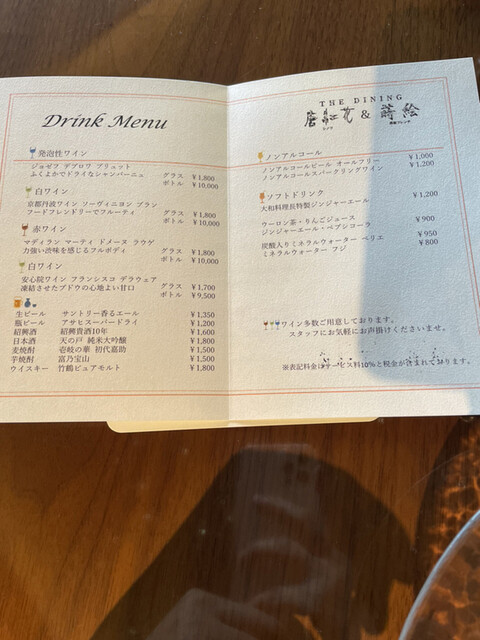 Drink Menu
発泡性ワイン
ジョゼフ デプロワ ブリュット グラス ¥1,800
ふくよかでドライなシャンパーニュ ボトル ¥10,000
白ワイン
京都丹波ワイン ソーヴィニヨン ブラン グラス ¥1,800
フードフレンドリーでフルーティ ボトル ¥10,000
赤ワイン
マディラン マーティ ドメーヌ ラウゲ グラス ¥1,800
力強い渋味を感じるフルボディ ボトル ¥10,000
白ワイン
安心院ワイン フランシスコ デラウェア グラス ¥1,700
凍結させたブドウの心地よい甘口 ボトル ¥9,500
生ビール サントリー香るエール ¥1,350
瓶ビール アサヒスーパードライ ¥1,200
紹興酒 紹興貴酒10年 ¥1,600
日本酒 天の戸 純米大吟醸 ¥1,800
麦焼酎 壱岐の華 初代嘉助 ¥1,500
芋焼酎 富乃宝山 ¥1,500
ウイスキー 竹鶴ピュアモルト ¥1,800
THE DINING
唐紅花 & 蒔絵
ノンアルコール
ノンアルコールビール オールフリー ¥1,000
ノンアルコールスパークリングワイン ¥1,200
ソフトドリンク
大和料理長特製ジンジャーエール ¥1,200
ウーロン茶・りんごジュース
ジンジャーエール・ペプシコーラ ¥900
炭酸入りミネラルウォーター ペリエ ¥950
ミネラルウォーター フジ ¥800
ワイン多数ご用意しております。
スタッフにお気軽にお声掛けくださいませ。
※表記料金はサービス料10%と税金が含まれております。